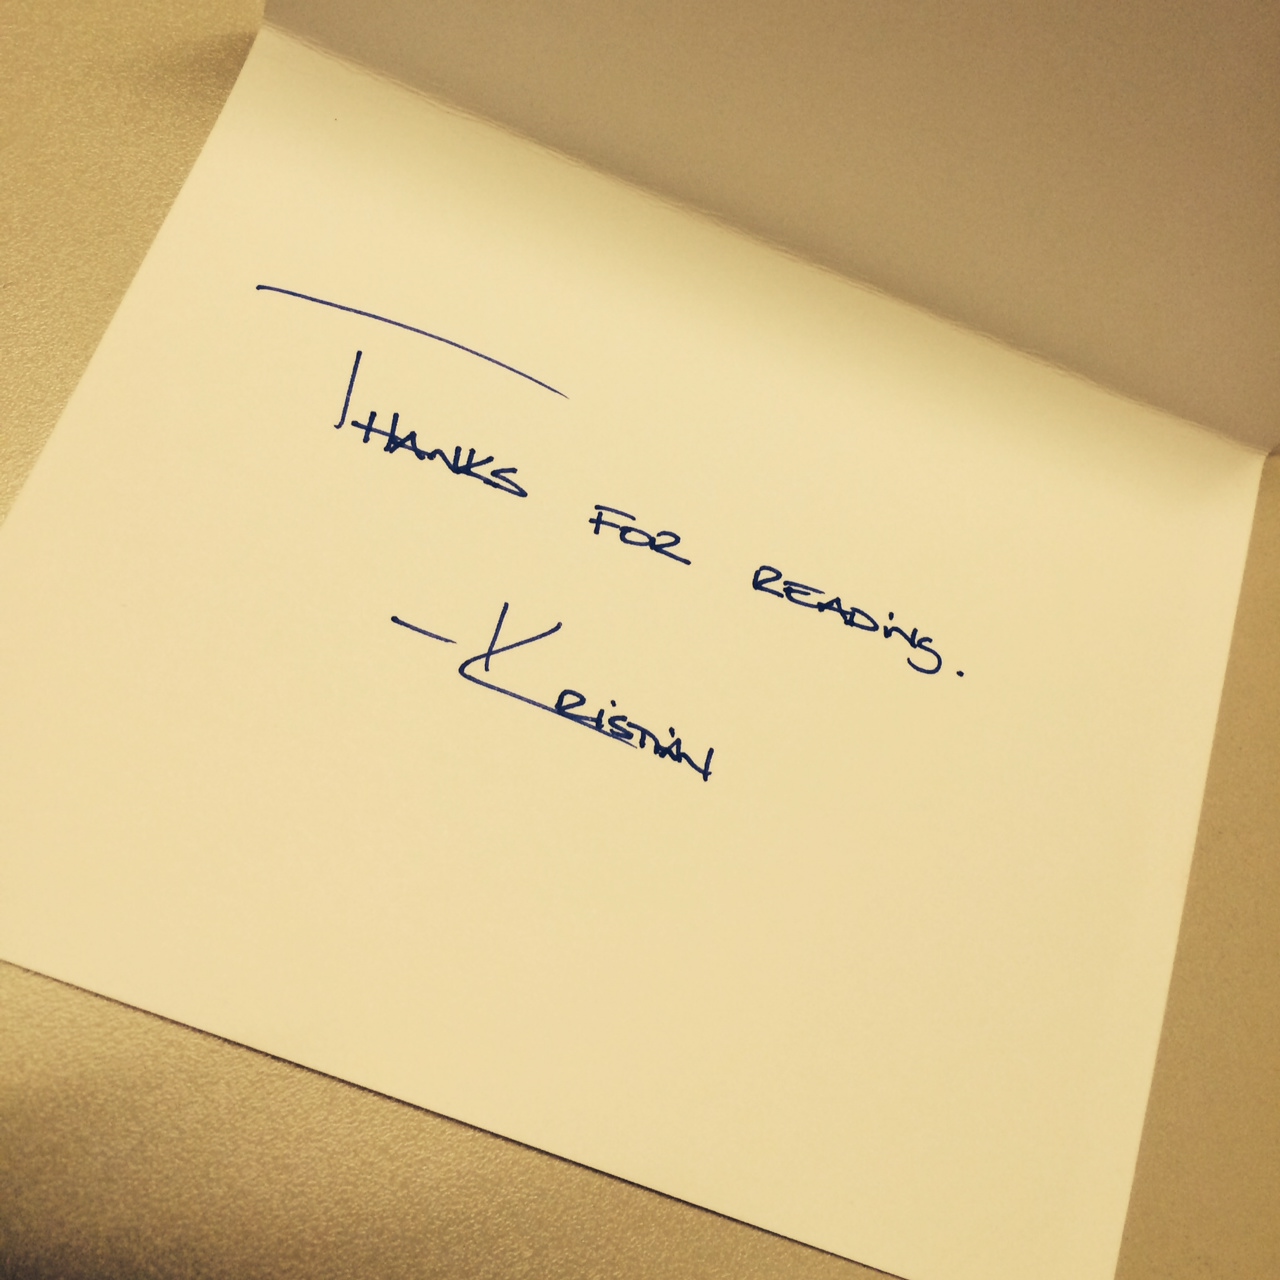 THANKS FOR READiNg.
-KRiSTiAN